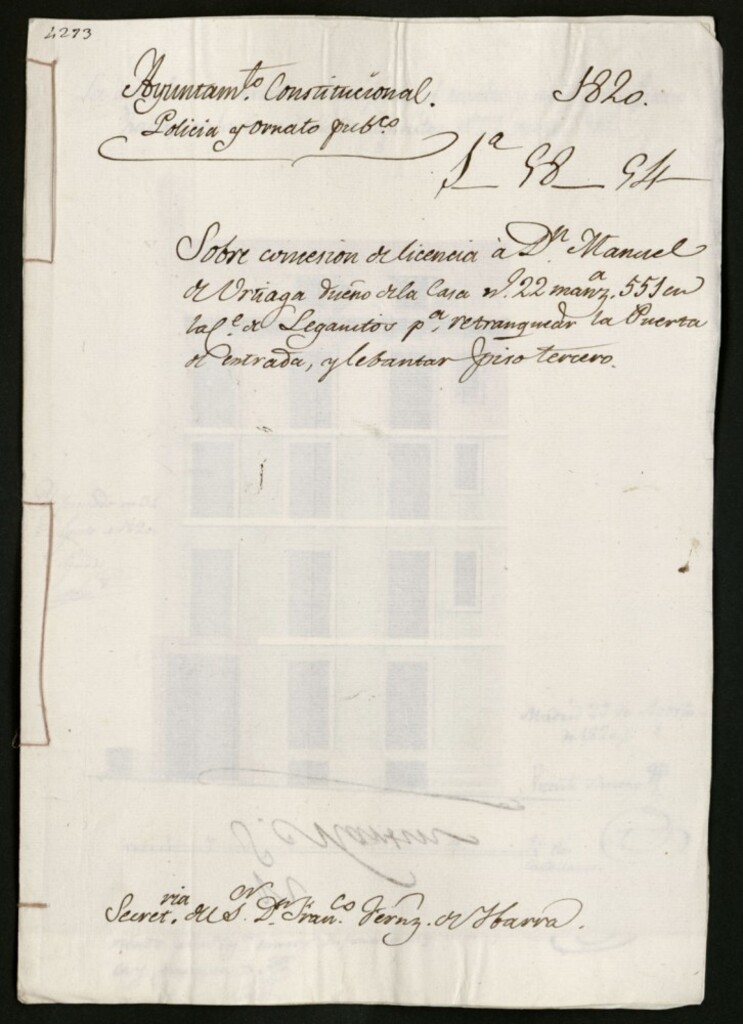 4273
Ayuntam.to Constitucional. 1820.
Policia y Ornato pub.co
1a 58 54
Sobre concesion de licencia à Dn. Manuel
de Urriaga dueño de la Casa n.o 22 manz.a 551 en
la C.e de Leganitos p.a retranquear la Puerta
de entrada, y lebantar piso tercero.
Secret.ria del S.or Dn. Fran.co Fernz. de Ibarra.